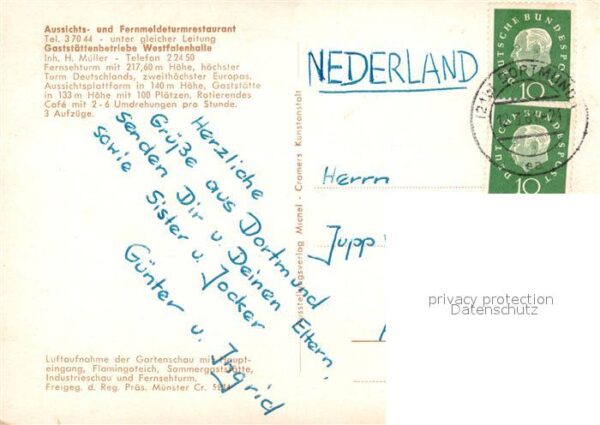 Aussichts- und Fernmeldeturmrestaurant
Tel. 3 70 44 - unter gleicher Leitung
Gaststättenbetriebe Westfalenhalle
Inh. H. Müller - Telefon 2 24 50
Fernsehturm mit 217,60 m Höhe, höchster
Turm Deutschlands, zweithöchster Europas.
Aussichtsplattform in 140 m Höhe, Gaststätte
in 133 m Höhe mit 100 Plätzen. Rotierendes
Café mit 2 - 6 Umdrehungen pro Stunde.
3 Aufzüge.
Herzliche
Grüße aus Dortmund
senden Dir u. Deinen Eltern,
sowie Sister u. Jocker
Günter u. Ingrid
Luftaufnahme der Gartenschau mit Haupt-
eingang, Flamingoteich, Sommergaststätte,
Industrieschau und Fernsehturm.
Freigeg. d. Reg. Präs. Münster Cr.
Ausstellungsverlag Michel - Cramers Kunstanstalt
NEDERLAND
DEUTSCHE BUNDESPOST
10
DORTMUND
DEUTSCHE BUNDESPOST
10
Herrn
Jupp
privacy protection
Datenschutz